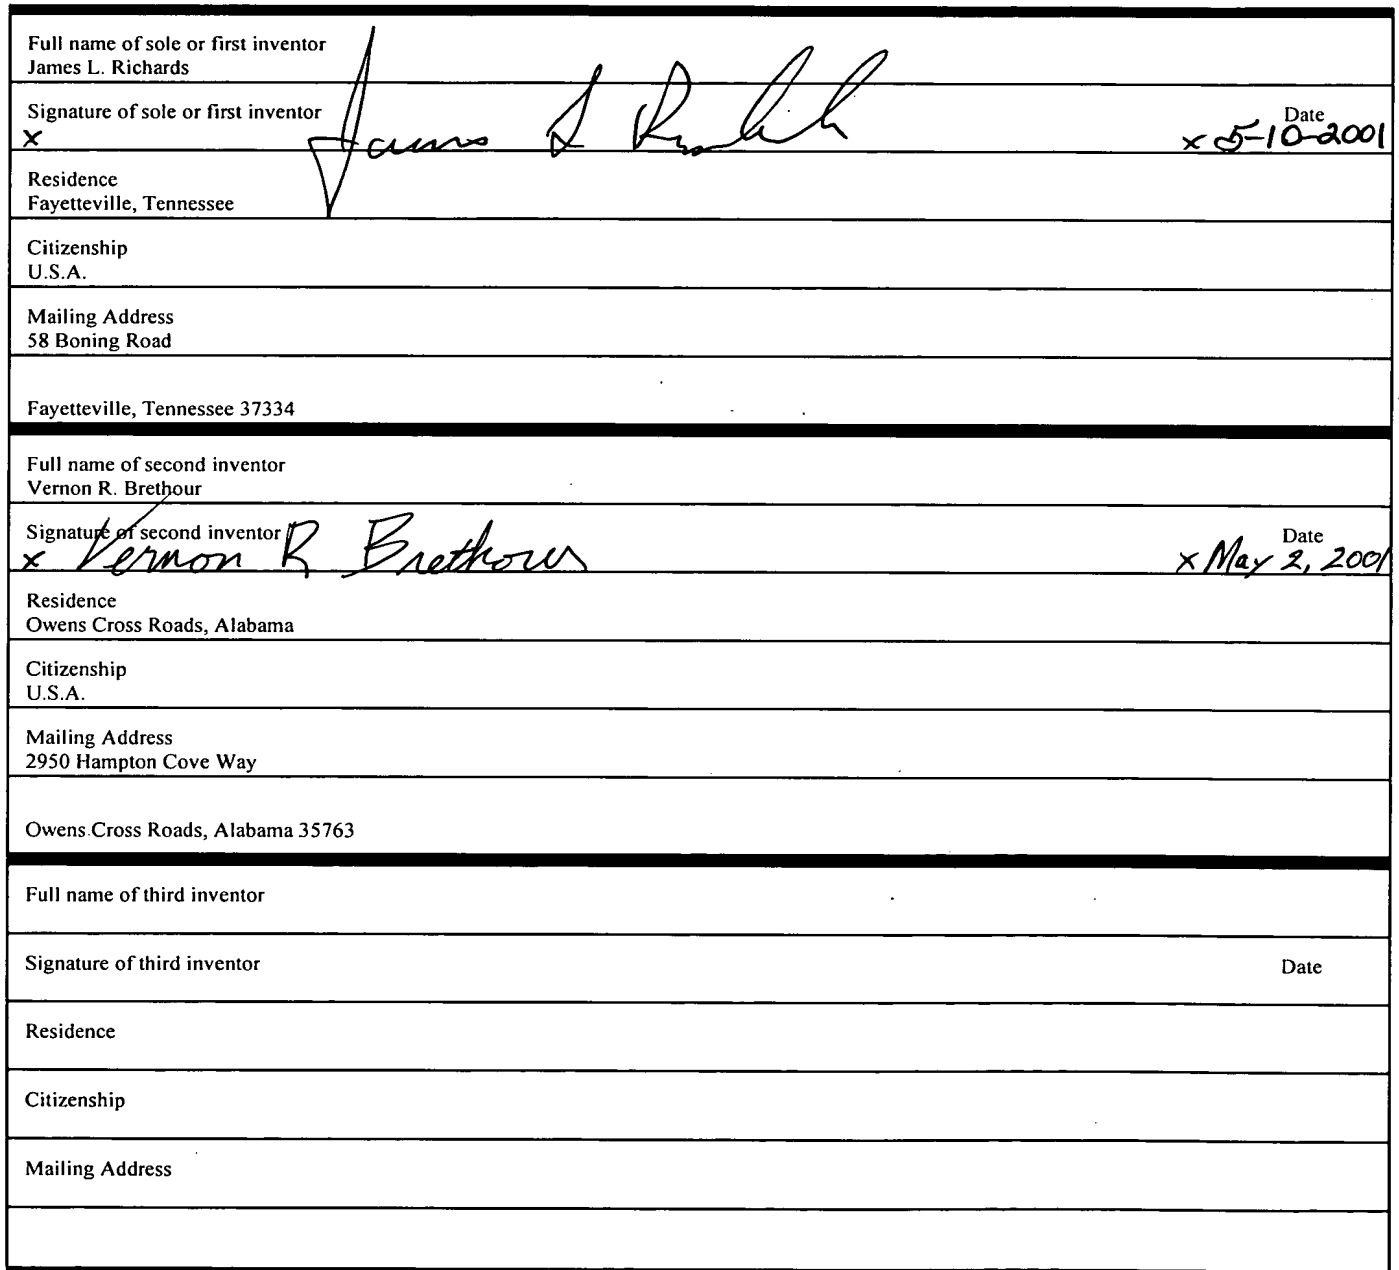 Full name of sole or first inventor
James L. Richards
Signature of sole or first inventor
Date
x James L Richards
x 5-10-2001
Residence
Fayetteville, Tennessee
Citizenship
U.S.A.
Mailing Address
58 Boning Road
Fayetteville, Tennessee 37334
Full name of second inventor
Vernon R. Brethour
Signature of second inventor
Date
x Vernon R Brethour
x May 2, 2001
Residence
Owens Cross Roads, Alabama
Citizenship
U.S.A.
Mailing Address
2950 Hampton Cove Way
Owens Cross Roads, Alabama 35763
Full name of third inventor
Signature of third inventor
Date
Residence
Citizenship
Mailing Address